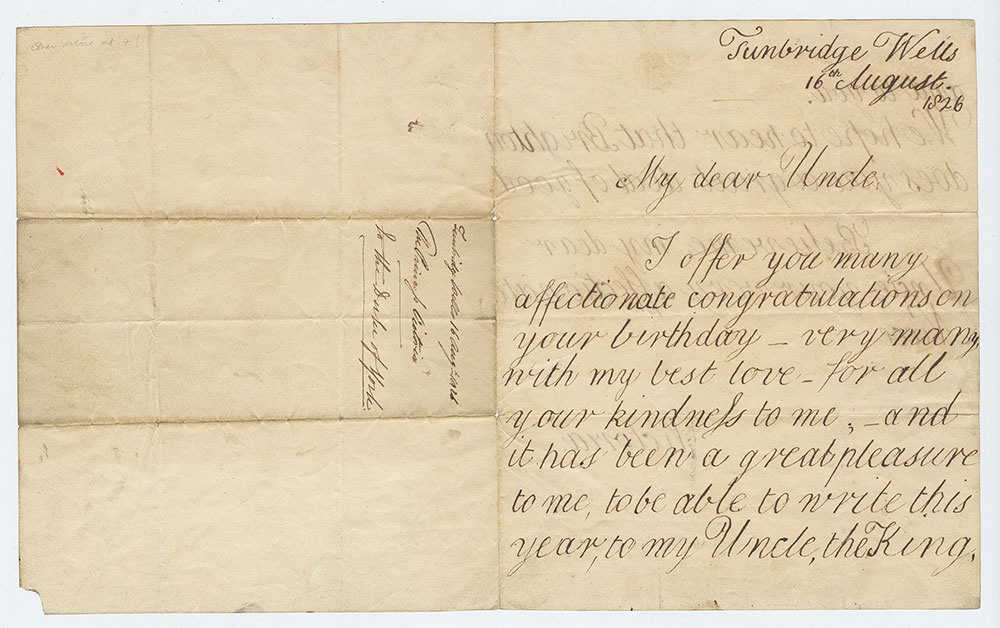 Tunbridge Wells
16th August.
1826
My dear Uncle,
I offer you many
affectionate congratulations on
your birthday – very many,
with my best love – for all
your kindneſs to me; – and
it has been a great pleasure
to me, to be able to write this
year, to my Uncle, the King,
Tunbridge Wells 16 Aug 1826
The Princess Victoria
to the Duke of York
We hope to hear that Brighton
does you a great deal of good.
Believe me my dear